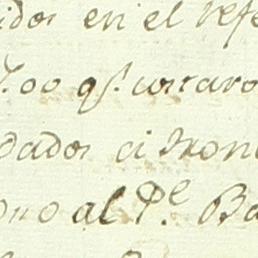 idos en el refe
7.00 qs. costaro
dados a dron
ono al Pe. Ba